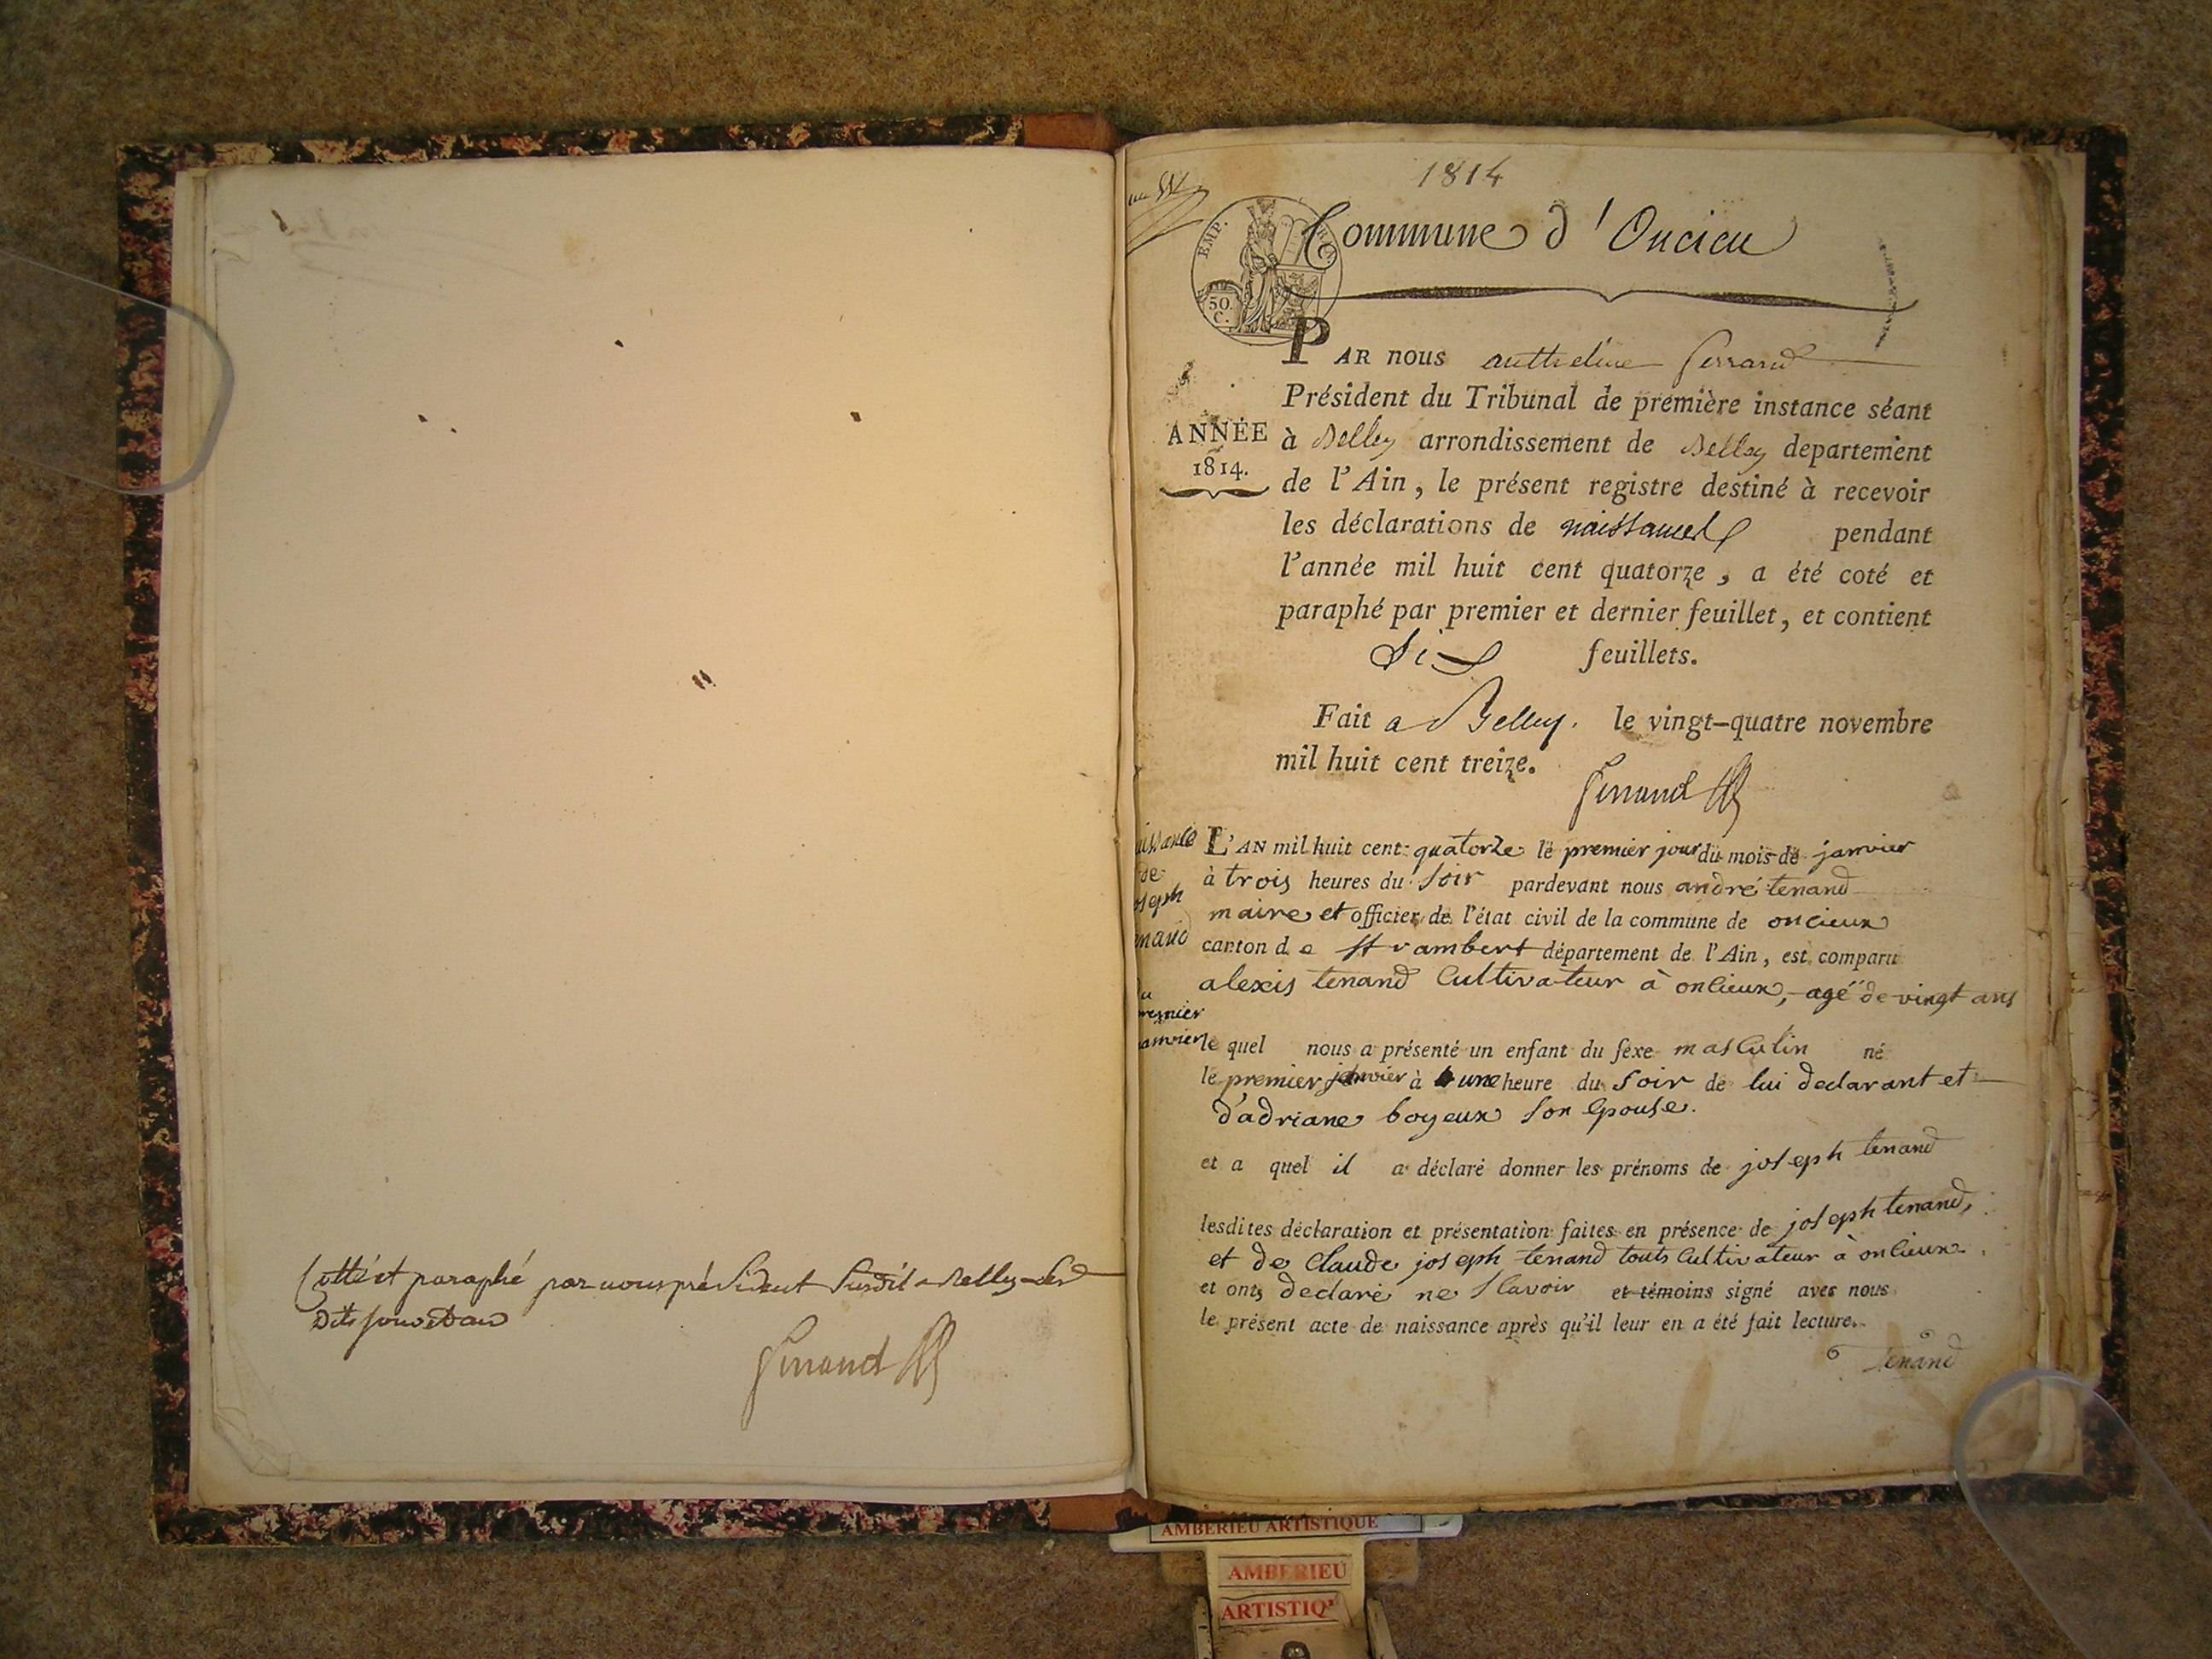 Cotté et paraphé par nous président susdit a Belley les
dits jour et an
Ferrand
1814
Commune d'Oncieu
EMP.
50
C.
PAR nous anthelme ferrand
Président du Tribunal de première instance séant
ANNÉE
1814.
à Belley arrondissement de Belley departement
de l'Ain, le présent registre destiné à recevoir
les déclarations de naissances pendant
l'année mil huit cent quatorze, a été coté et
paraphé par premier et dernier feuillet, et contient
Six feuillets.
Fait a Belley. le vingt-quatre novembre
mil huit cent treize.
Ferrand
issance
de
oseph
enand
u
remier
anvier
L'AN mil huit cent quatorze le premier jour du mois de janvier
à trois heures du soir pardevant nous andré tenand
maire et officier de l'état civil de la commune de oncieux
canton de St rambert département de l'Ain, est comparu
alexis tenand Cultivateur à oncieux, agé de vingt ans
le quel nous a présenté un enfant du sexe masculin né
le premier janvier à une heure du soir de lui declarant et
d'adriane boyeux son epouse.
et a quel il a déclaré donner les prénoms de joseph tenand
lesdites déclaration et présentation faites en présence de joseph tenand,
et de Claude joseph tenand touts Cultivateur à oncieux
et onts declaré ne scavoir et témoins signé avec nous
le présent acte de naissance après qu'il leur en a été fait lecture.
tenand
AMBERIEU ARTISTIQUE
AMBERIEU
ARTISTIQ